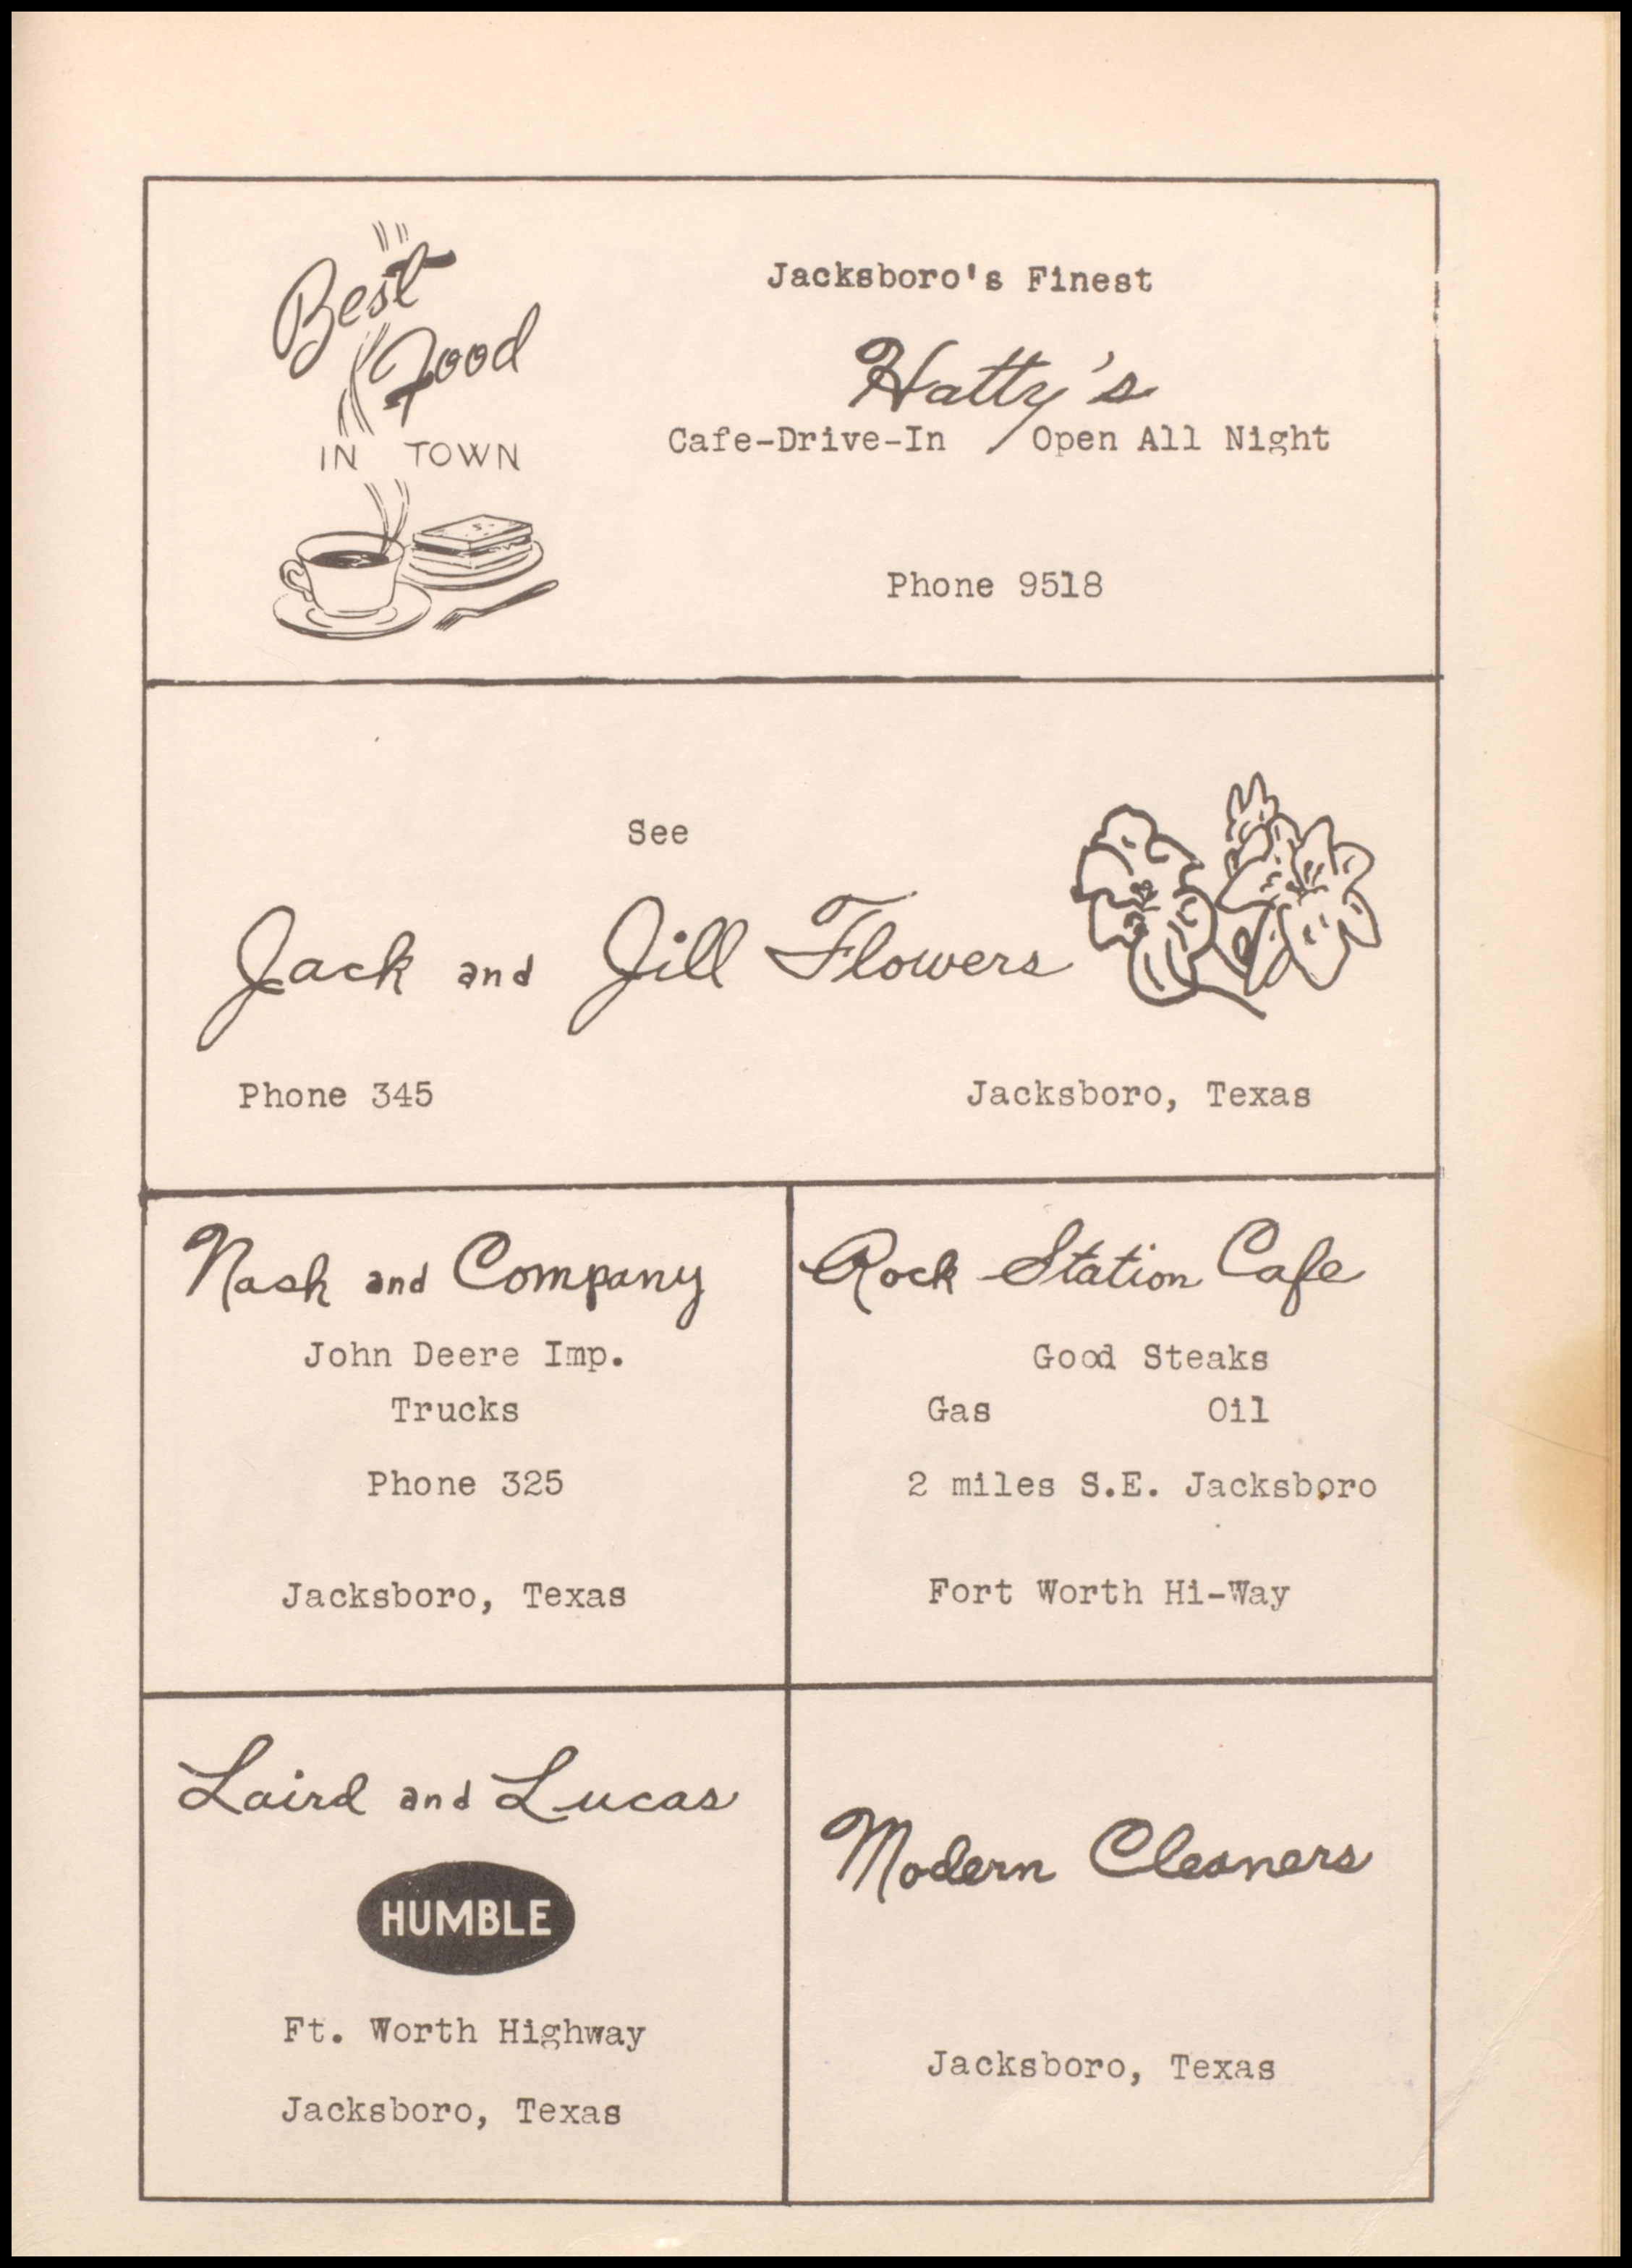 Best
Food
IN TOWN
Jacksboro's Finest
Hatty's
Cafe-Drive-In Open All Night
Phone 9518
See
Jack and Jill Flowers
Phone 345
Jacksboro, Texas
Nash and Company
John Deere Imp.
Trucks
Phone 325
Jacksboro, Texas
Rock Station Cafe
Good Steaks
Gas Oil
2 miles S.E. Jacksboro
Fort Worth Hi-Way
Laird and Lucas
HUMBLE
Ft. Worth Highway
Jacksboro, Texas
Modern Cleaners
Jacksboro, Texas